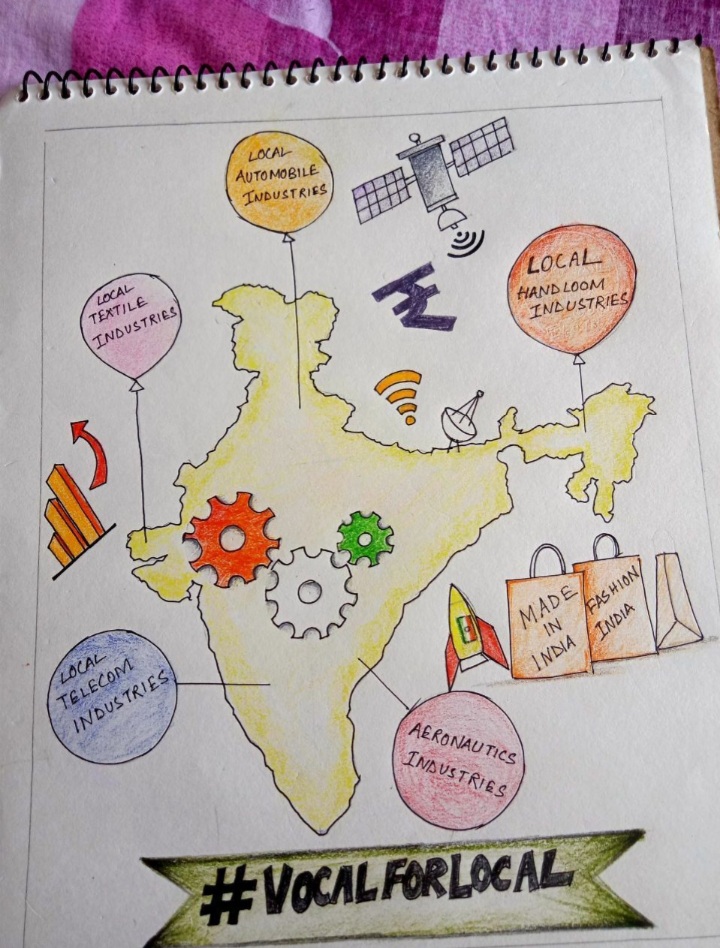 LOCAL
AUTOMOBILE
INDUSTRIES
LOCAL
TEXTILE
INDUSTRIES
LOCAL
HANDLOOM
INDUSTRIES
₹
MADE
IN
INDIA
FASHION
INDIA
LOCAL
TELECOM
INDUSTRIES
AERONAUTICS
INDUSTRIES
#VOCALFORLOCAL